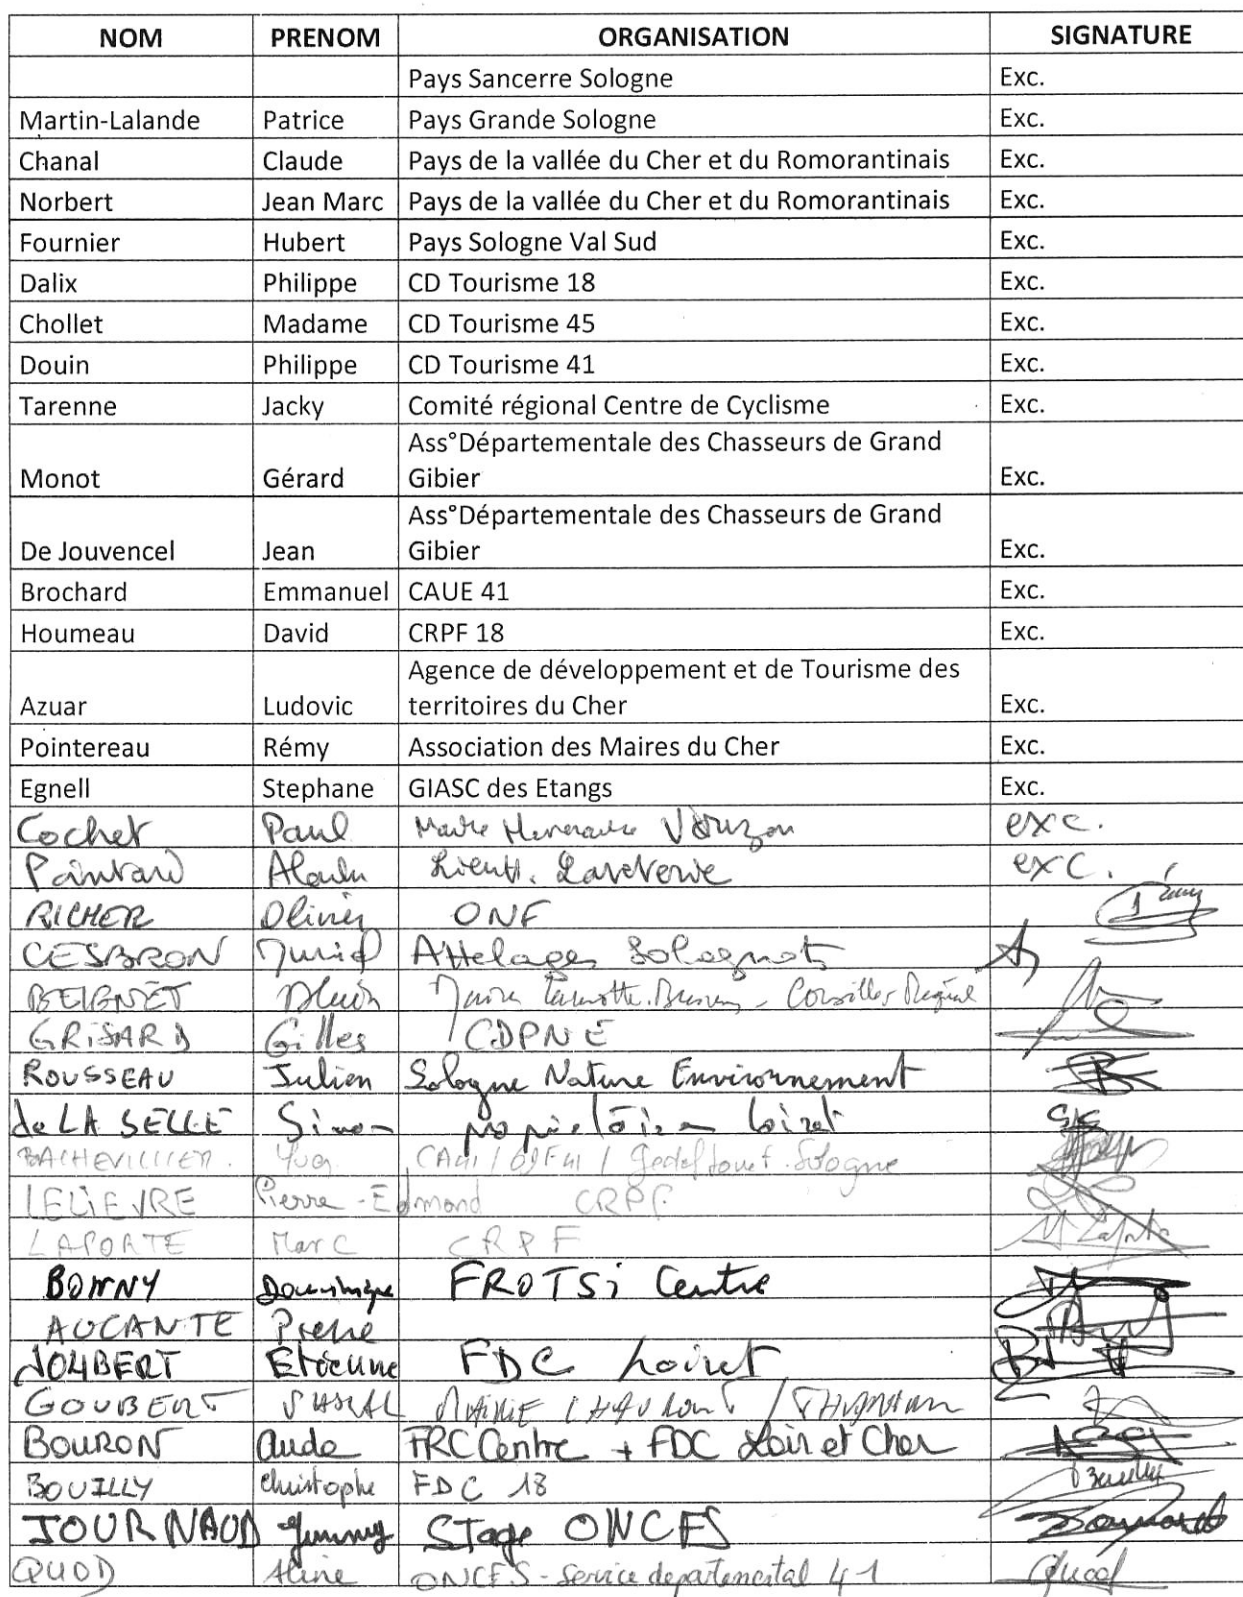 NOM PRENOM ORGANISATION SIGNATURE
Pays Sancerre Sologne Exc.
Martin-Lalande Patrice Pays Grande Sologne Exc.
Chanal Claude Pays de la vallée du Cher et du Romorantinais Exc.
Norbert Jean Marc Pays de la vallée du Cher et du Romorantinais Exc.
Fournier Hubert Pays Sologne Val Sud Exc.
Dalix Philippe CD Tourisme 18 Exc.
Chollet Madame CD Tourisme 45 Exc.
Douin Philippe CD Tourisme 41 Exc.
Tarenne Jacky Comité régional Centre de Cyclisme Exc.
Ass°Départementale des Chasseurs de Grand
Monot Gérard Gibier Exc.
Ass°Départementale des Chasseurs de Grand
De Jouvencel Jean Gibier Exc.
Brochard Emmanuel CAUE 41 Exc.
Houmeau David CRPF 18 Exc.
Agence de développement et de Tourisme des
Azuar Ludovic territoires du Cher Exc.
Pointereau Rémy Association des Maires du Cher Exc.
Egnell Stephane GIASC des Etangs Exc.
Cochet Paul Maire Honoraire Vouzon exc.
Alain Lieut. Louveterie exc.
RICHER Olivier ONF
CESBRON Muriel Attelages Solognots
BEIGNET Alain Maire Lamotte-Beuvron - Conseiller Régional
GRISARD Gilles CDPNE
ROUSSEAU Julien Sologne Nature Environnement
de LA SELLE Simon propriétaire Loiret
BACHEVILLIER Yves Sologne
LELIEVRE Pierre-Edmond CRPF
LAPORTE Marc CRPF
BONNY Dominique FROTSi Centre
AUCANTE Pierre
JOUBERT Etienne FDC Loiret
GOUBERT PASCAL MAIRIE CHAUMONT / THARONNE
BOURON Aude FRC Centre + FDC Loir et Cher
BOUILLY Christophe FDC 18
JOURNAUD Jimmy Stage ONCFS
QUOD Aline ONCFS - Service departemental 41